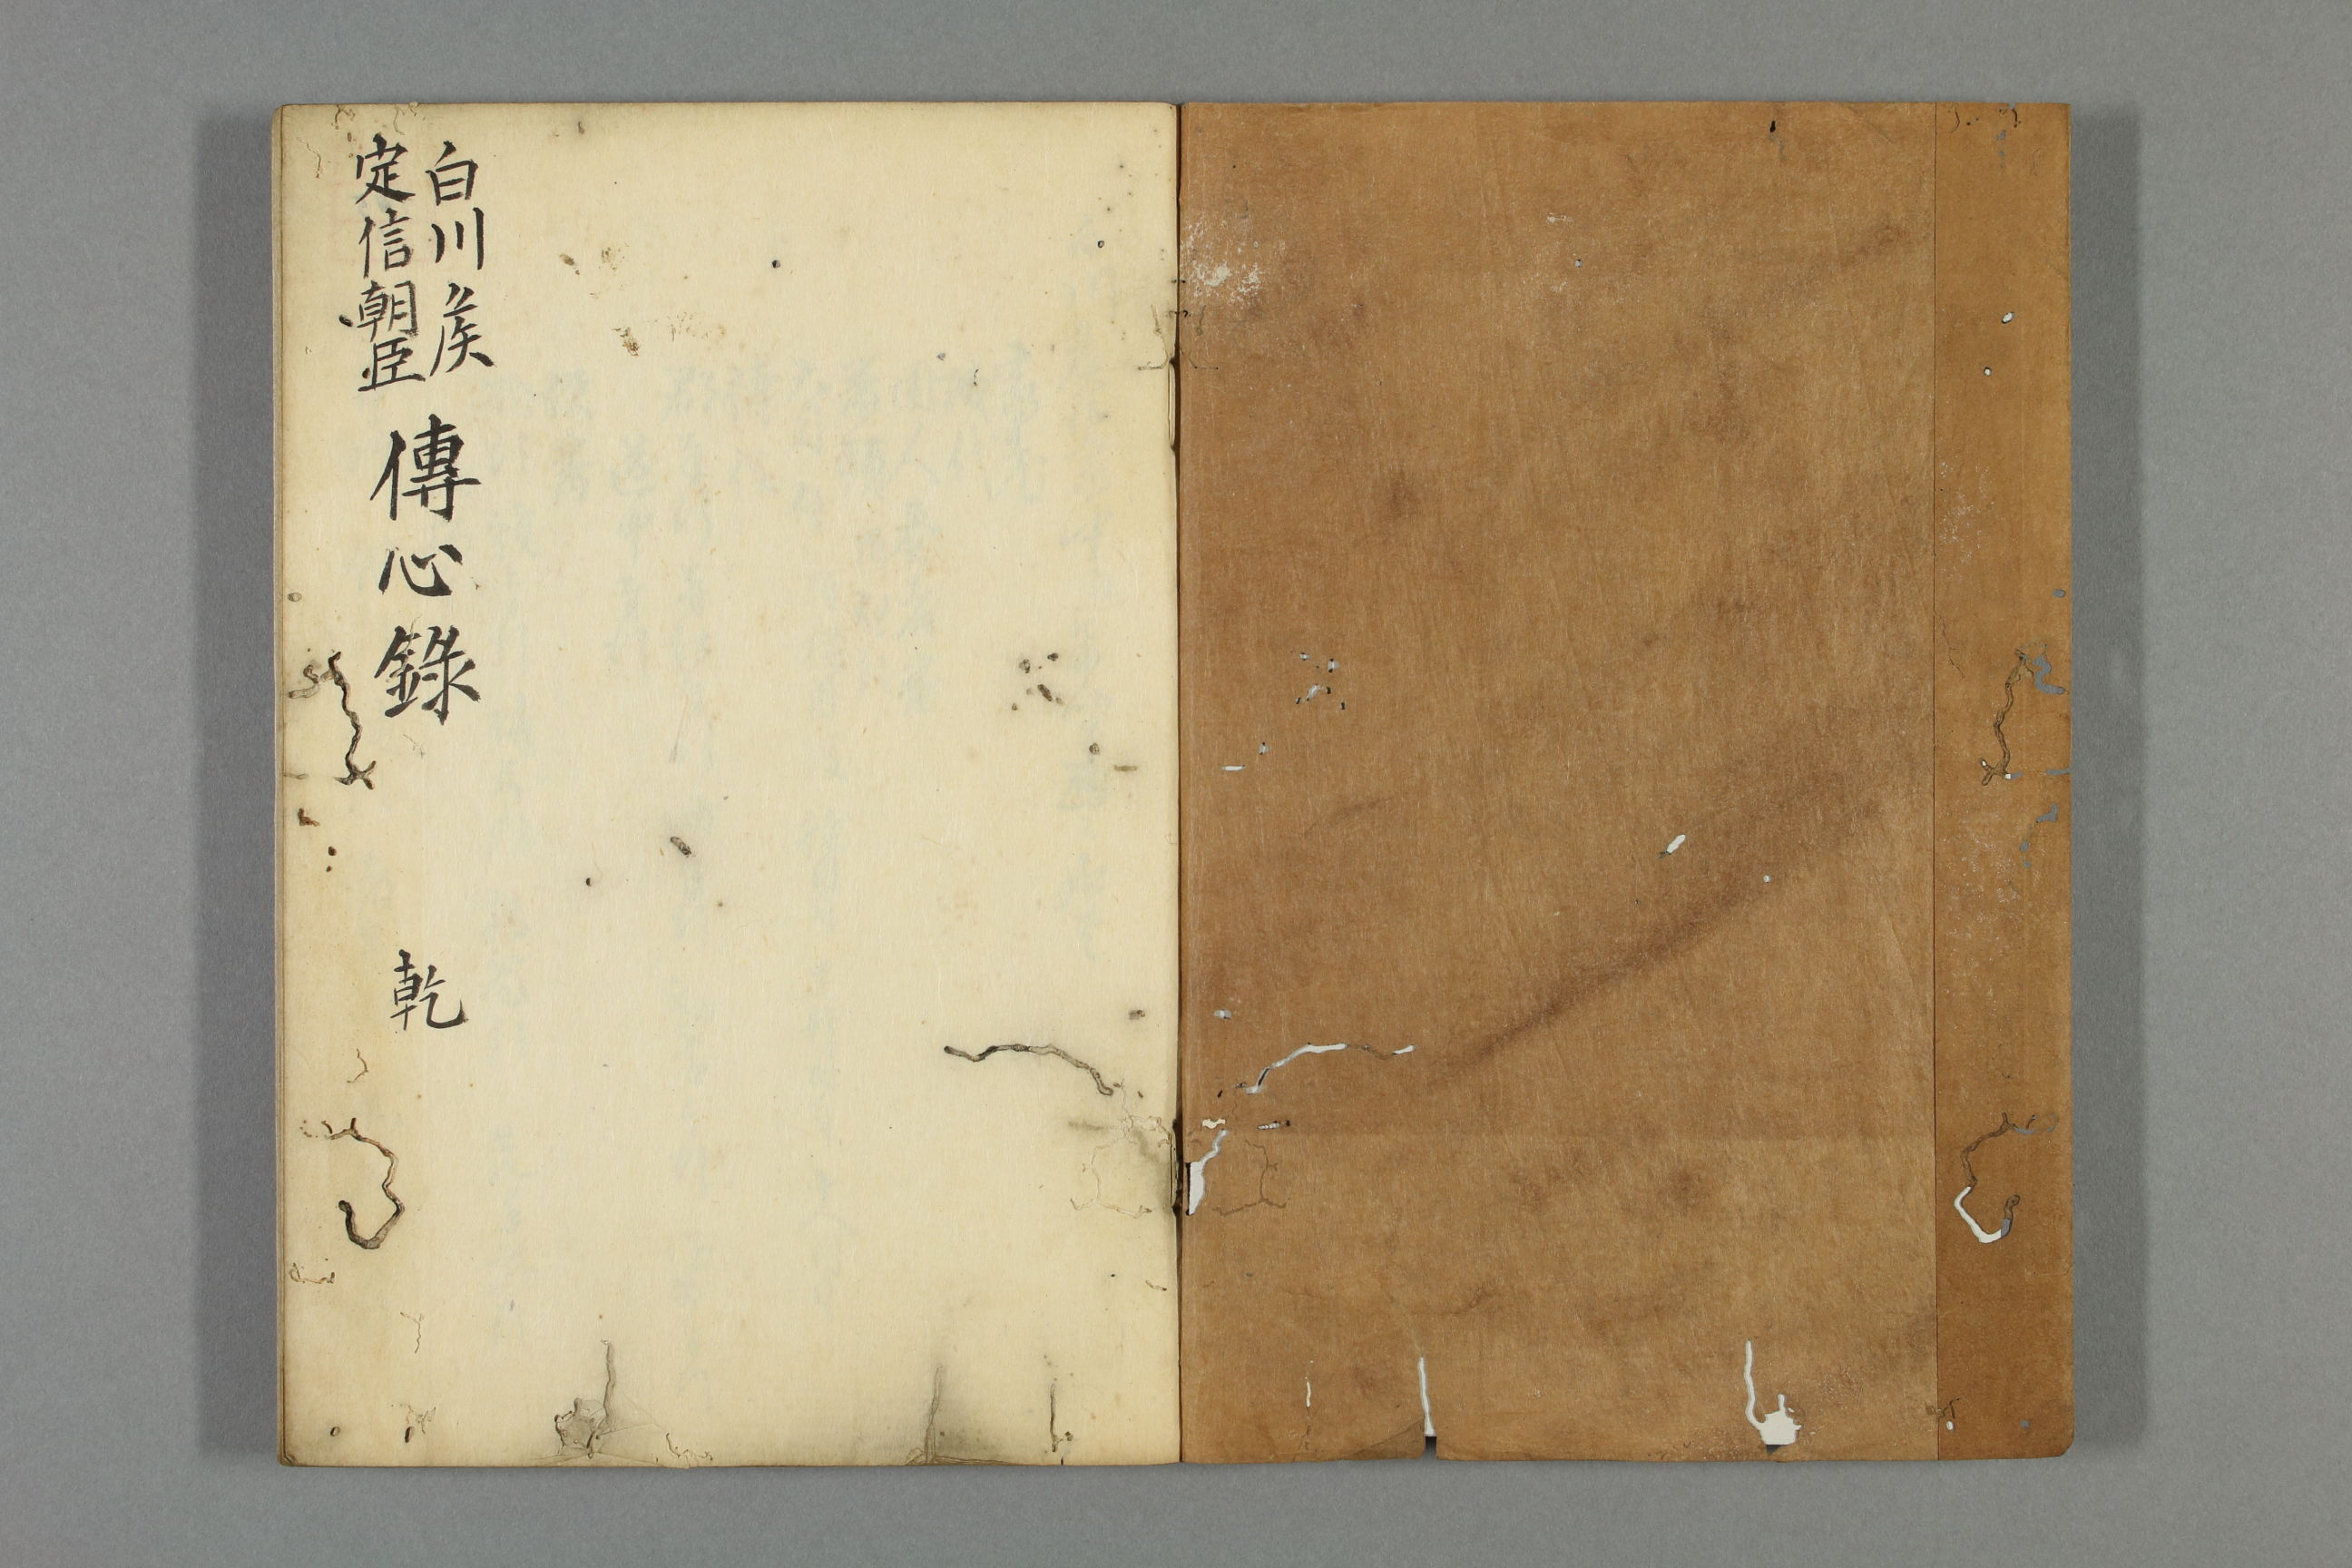 白川侯
定信朝臣
傳心錄
乾